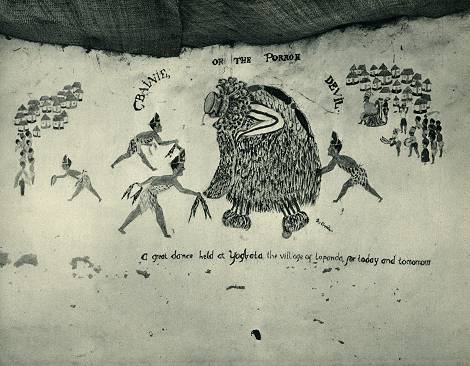 GBAINIE, OR THE PORROH DEVIL
a great dance held at Yogbata the village of Lopanda for today and tomorrow